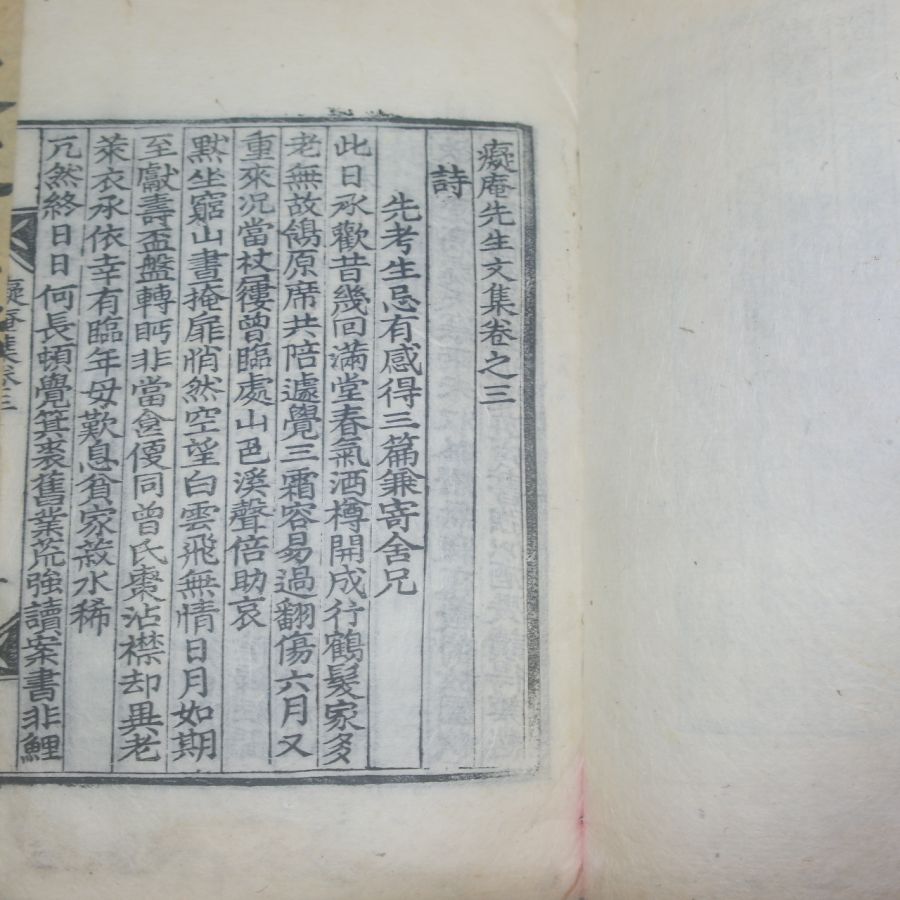 癡庵先生文集卷之三
詩
先考生忌有感得三篇兼寄舍兄
此日承歡昔幾回滿堂春氣酒樽開成行鶴髮家多
老無故鴒原席共陪遽覺三霜容易過翻傷六月又
重來况當杖屨曾臨處山邑溪聲倍助哀
默坐窮山書掩扉悄然空望白雲飛無情日月如期
至獻壽盃盤轉眄非當食便同曾氏棗沾襟却異老
萊衣承依幸有臨年母歎息貧家菽水稀
兀然終日日何長頓覺箕裘舊業荒強讀案書非鯉
癡庵集卷三